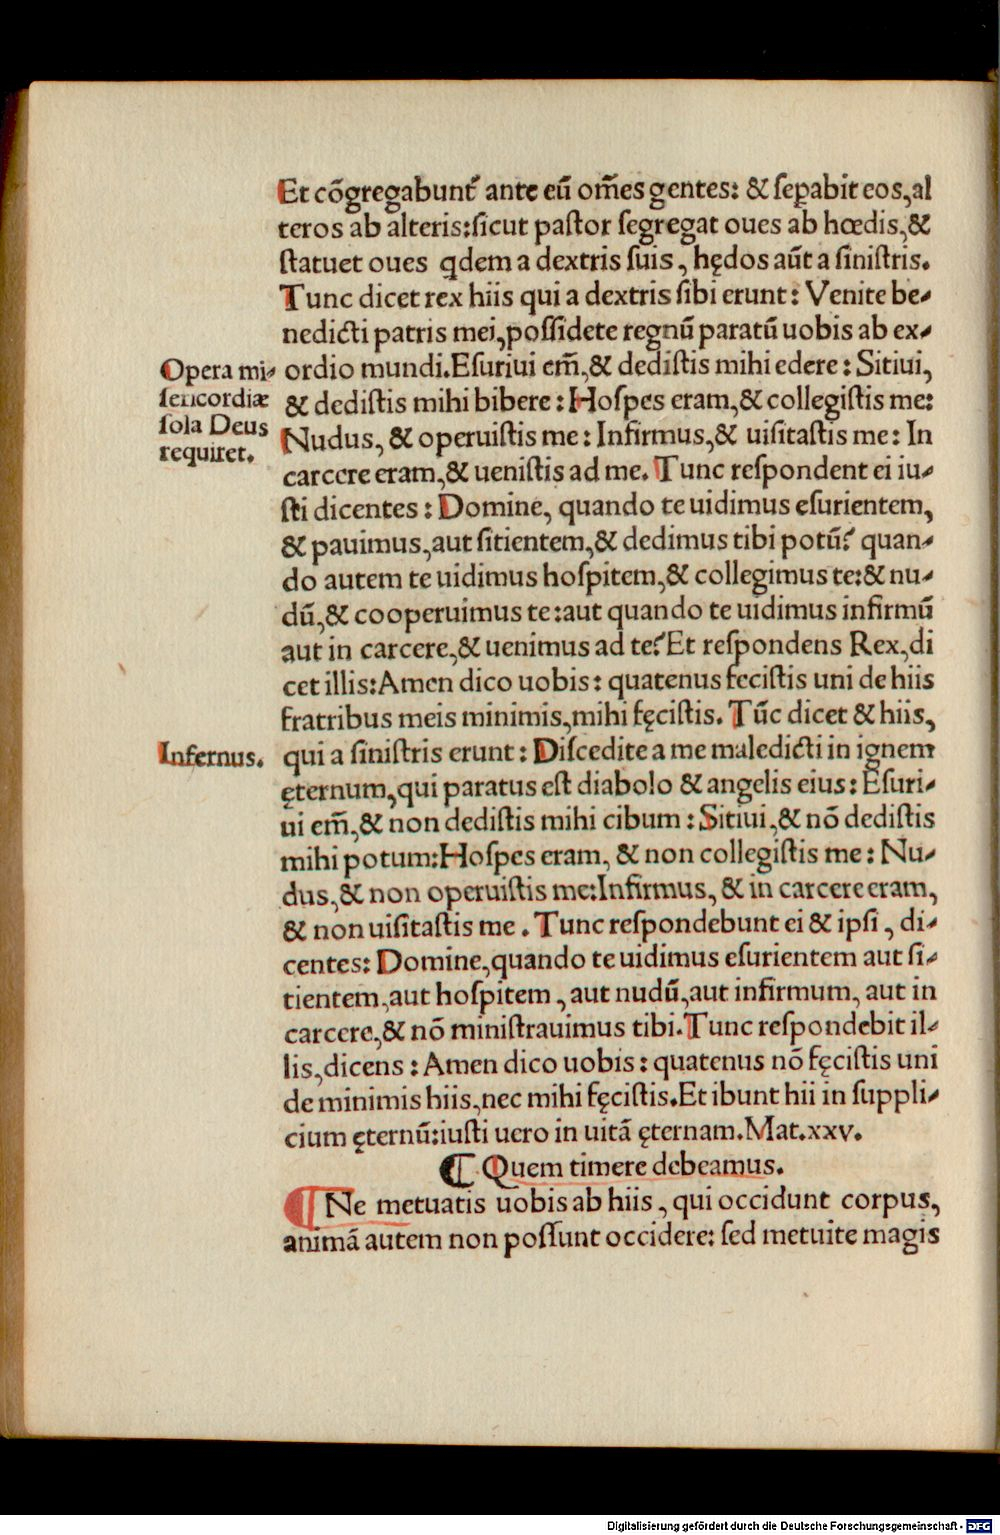 Et cõgregabunt᷑ ante eũ om̃es gentes: & ſeꝑabit eos, al
teros ab alteris: ſicut paſtor ſegregat oues ab hœdis, &
ſtatuet oues qdem a dextris ſuis, hędos aũt a ſiniſtris.
Tunc dicet rex hiis qui a dextris ſibi erunt: Venite be-
nedicti patris mei, poſſidete regnũ paratũ uobis ab ex-
ordio mundi. Eſuriui em̃, & dediſtis mihi edere: Sitiui,
& dediſtis mihi bibere: Hoſpes eram, & collegiſtis me:
Nudus, & operuiſtis me: Infirmus, & uiſitaſtis me: In
carcere eram, & ueniſtis ad me. Tunc reſpondent ei iu-
ſti dicentes: Domine, quando te uidimus eſurientem,
& pauimus, aut ſitientem, & dedimus tibi potũ? quan-
do autem te uidimus hoſpitem, & collegimus te: & nu-
dũ, & cooperuimus te: aut quando te uidimus infirmũ
aut in carcere, & uenimus ad te? Et reſpondens Rex, di
cet illis: Amen dico uobis: quatenus feciſtis uni de hiis
fratribus meis minimis, mihi fęciſtis. Tũc dicet & hiis,
qui a ſiniſtris erunt: Diſcedite a me maledicti in ignem
ęternum, qui paratus eſt diabolo & angelis eius: Eſuri-
ui em̃, & non dediſtis mihi cibum: Sitiui, & nõ dediſtis
mihi potum: Hoſpes eram, & non collegiſtis me: Nu-
dus, & non operuiſtis me: Infirmus, & in carcere eram,
& non uiſitaſtis me. Tunc reſpondebunt ei & ipſi, di-
centes: Domine, quando te uidimus eſurientem aut ſi-
tientem, aut hoſpitem, aut nudũ, aut infirmum, aut in
carcere, & nõ miniſtrauimus tibi. Tunc reſpondebit il-
lis, dicens: Amen dico uobis: quatenus nõ fęciſtis uni
de minimis hiis, nec mihi fęciſtis. Et ibunt hii in ſuppli-
cium ęternũ: iuſti uero in uitã ęternam. Mat. xxv.
¶ Quem timere debeamus.
¶ Ne metuatis uobis ab hiis, qui occidunt corpus,
animã autem non poſſunt occidere: ſed metuite magis
Opera mi-
ſericordiæ
ſola Deus
requiret.
Infernus.
Digitalisierung gefördert durch die Deutsche Forschungsgemeinschaft - DFG